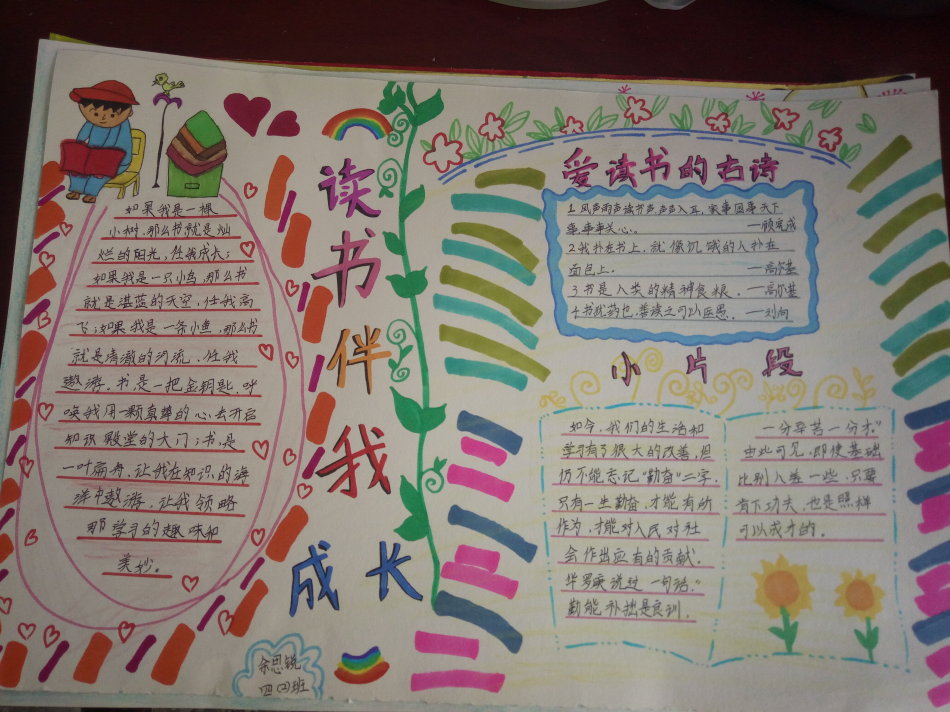 如果我是一棵
小树,那么书就是灿
烂的阳光,任我成长;
如果我是一只小鸟,那么书
就是湛蓝的天空,任我高
飞;如果我是一条小鱼,那么书
就是清澈的河流,任我
遨游。书是一把金钥匙,呼
唤我用一颗真挚的心去开启
知识殿堂的大门;书是
一叶扁舟,让我在知识的海
洋中遨游,让我领略
那学习的趣味和
美妙。
读书伴我
成长
余思锐
四(2)班
爱读书的古诗
1.风声雨声读书声,声声入耳,家事国事天下
事,事事关心。——顾宪成
2.我扑在书上,就像饥饿的人扑在
面包上。——高尔基
3.书是人类的精神食粮。——高尔基
4.书犹药也,善读之可以医愚。——刘向
小片段
如今,我们的生活和
学习有了很大的改善,但
仍不能忘记“勤奋”二字,
只有一生勤奋,才能有所
作为,才能对人民对社
会作出应有的贡献。
华罗庚说过一句话:“
勤能补拙是良训,
一分辛苦一分才。”
由此可见,即使基础
比别人差一些,只要
肯下功夫,也是照样
可以成才的。